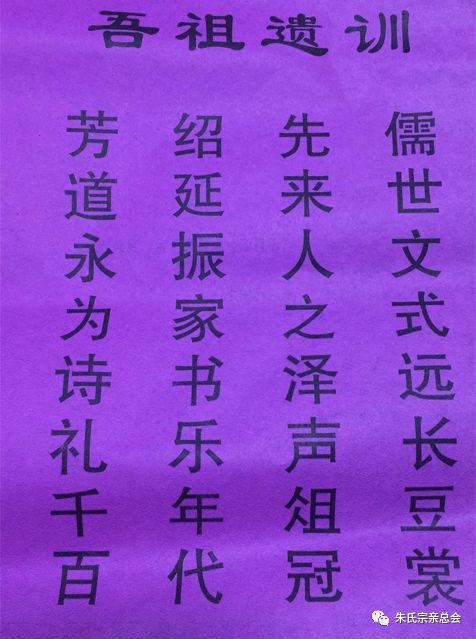 吾祖遗训
芳绍先儒
道延来世
永振人文
为家之式
诗书泽远
礼乐声长
千年俎豆
百代冠裳
朱氏宗亲总会